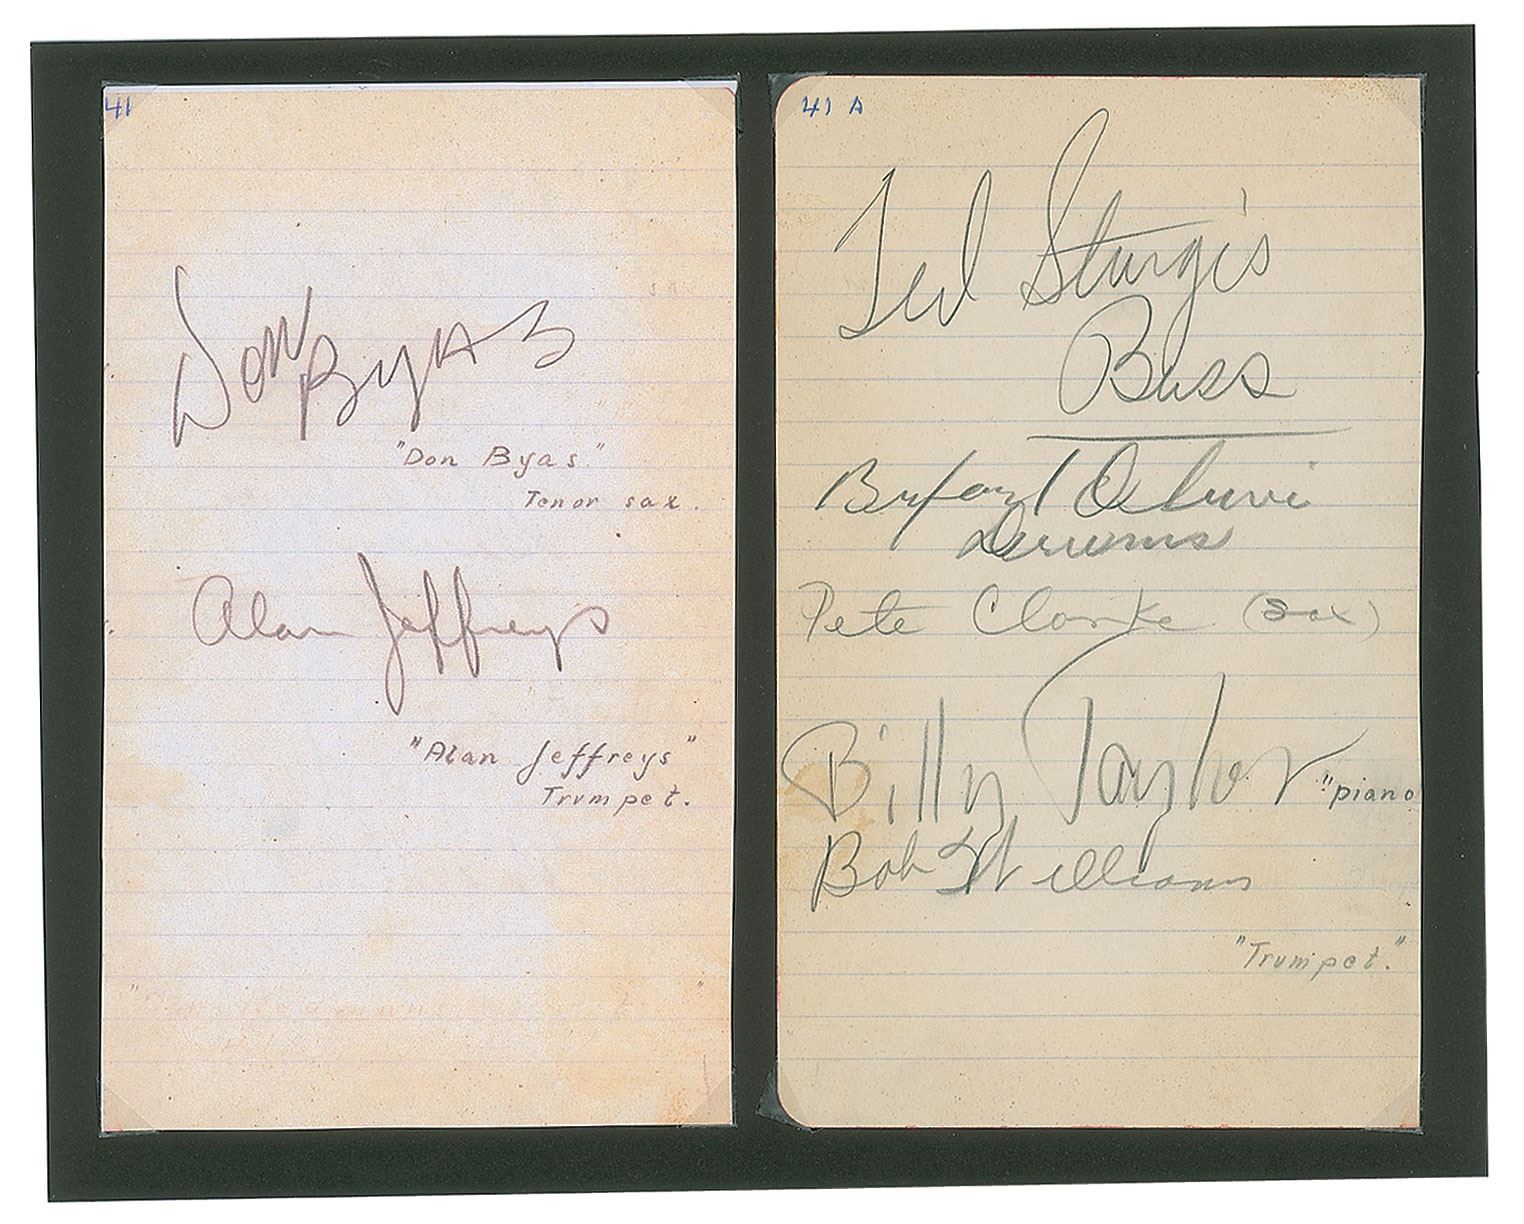 41
Don Byas
"Don Byas"
Tenor sax.
Alan Jeffreys
"Alan Jeffreys"
Trumpet.
41 A
Ted Sturgis
Bass
Drums
Pete Clarke (sax)
Billy Taylor "piano
Bob Williams
"Trumpet."